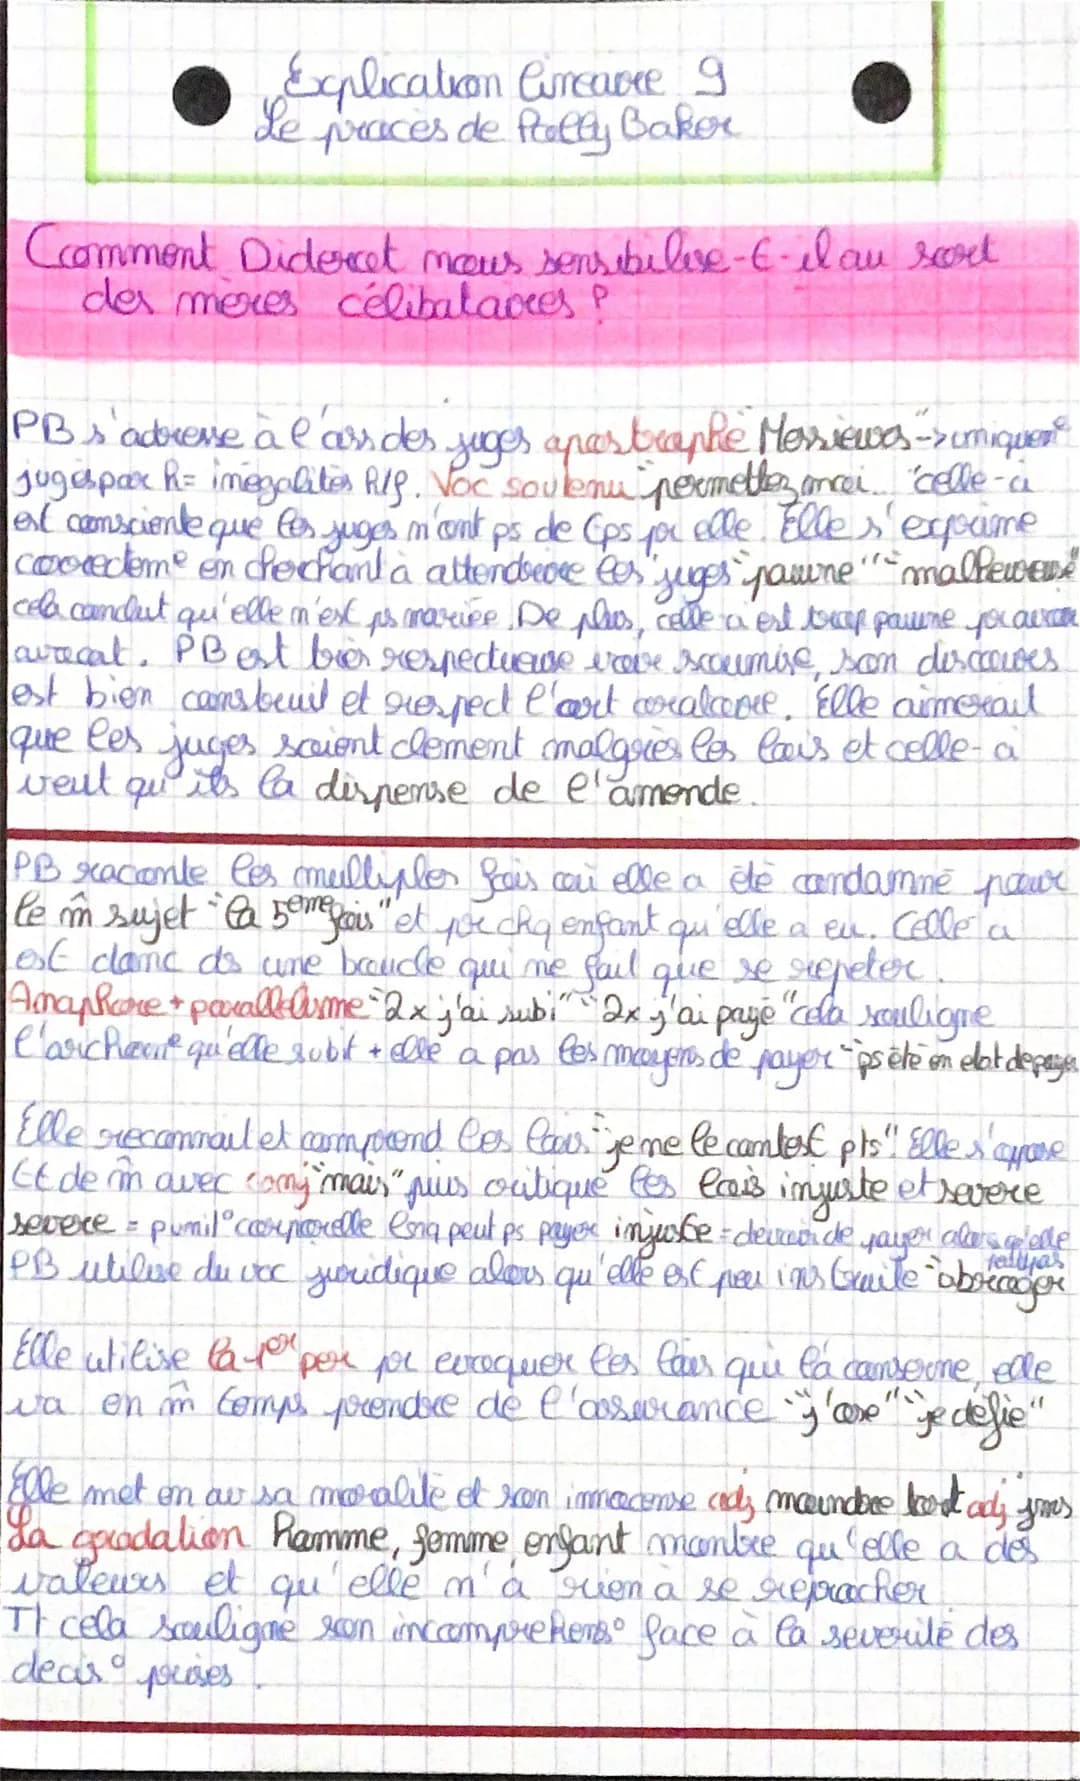 Explication linéaire 9
Le procès de Polly Baker
Comment Diderot nous sensibilise-t-il au sort
des mères célibataires ?
PB s'adresse à l'ass des juges apostraphe "Messieurs" -> uniquemt
juges par h = inégalités h/f. Voc soutenu "permettez moi.." celle-ci
est consciente que les juges n'ont ps de tps pr elle. Elle s'exprime
correctemt en cherchant à attendrire les juges "pauvre" "malheureuse"
cela conduit qu'elle n'est ps mariée. De plus, celle ci est trop pauvre pr avoir
avocat. PB est bien respectueuse voire soumise, son discours
est bien construit et respect l'art oratoire. Elle aimerait
que les juges soient clement malgrès les lois et celle-ci
veut qu'ils la dispense de l'amende.
PB raconte les multiples fois où elle a été condamné pour
le m̂ sujet "la 5eme fois" et pr chq enfant qu'elle a eu. Celle ci
est donc ds une boucle qui ne fait que se repeter.
Anaphore + parallélisme "2x j'ai subi" "2x j'ai payé" cela souligne
l'archarnemt qu'elle subit + elle a pas les moyens de payer "ps été en etat de payer
Elle reconnait et comprend les lois "je ne le contest pts". Elle s'oppose
tt de m̂ avec conj "mais" puis critique les lois injuste et severe
severe = punit° corporelle lorsq peut ps payer injuste = devoir de payer alors qu'elle
PB utilise du voc juridique alors qu'elle est peu instruite "abroger
Elle utilise la 1ere per pr evoquer les lois qui la conserne, elle
va en m̂ temps prendre de l'assurance "j'ose" "je defie"
Elle met en av sa moralité et son innocense adj moindre tort adj jms
La gradation Homme, femme, enfant montre qu'elle a des
valeurs et qu'elle n'a rien à se reprocher
Tt cela souligne son incomprehens° face à la severité des
decis° prises.